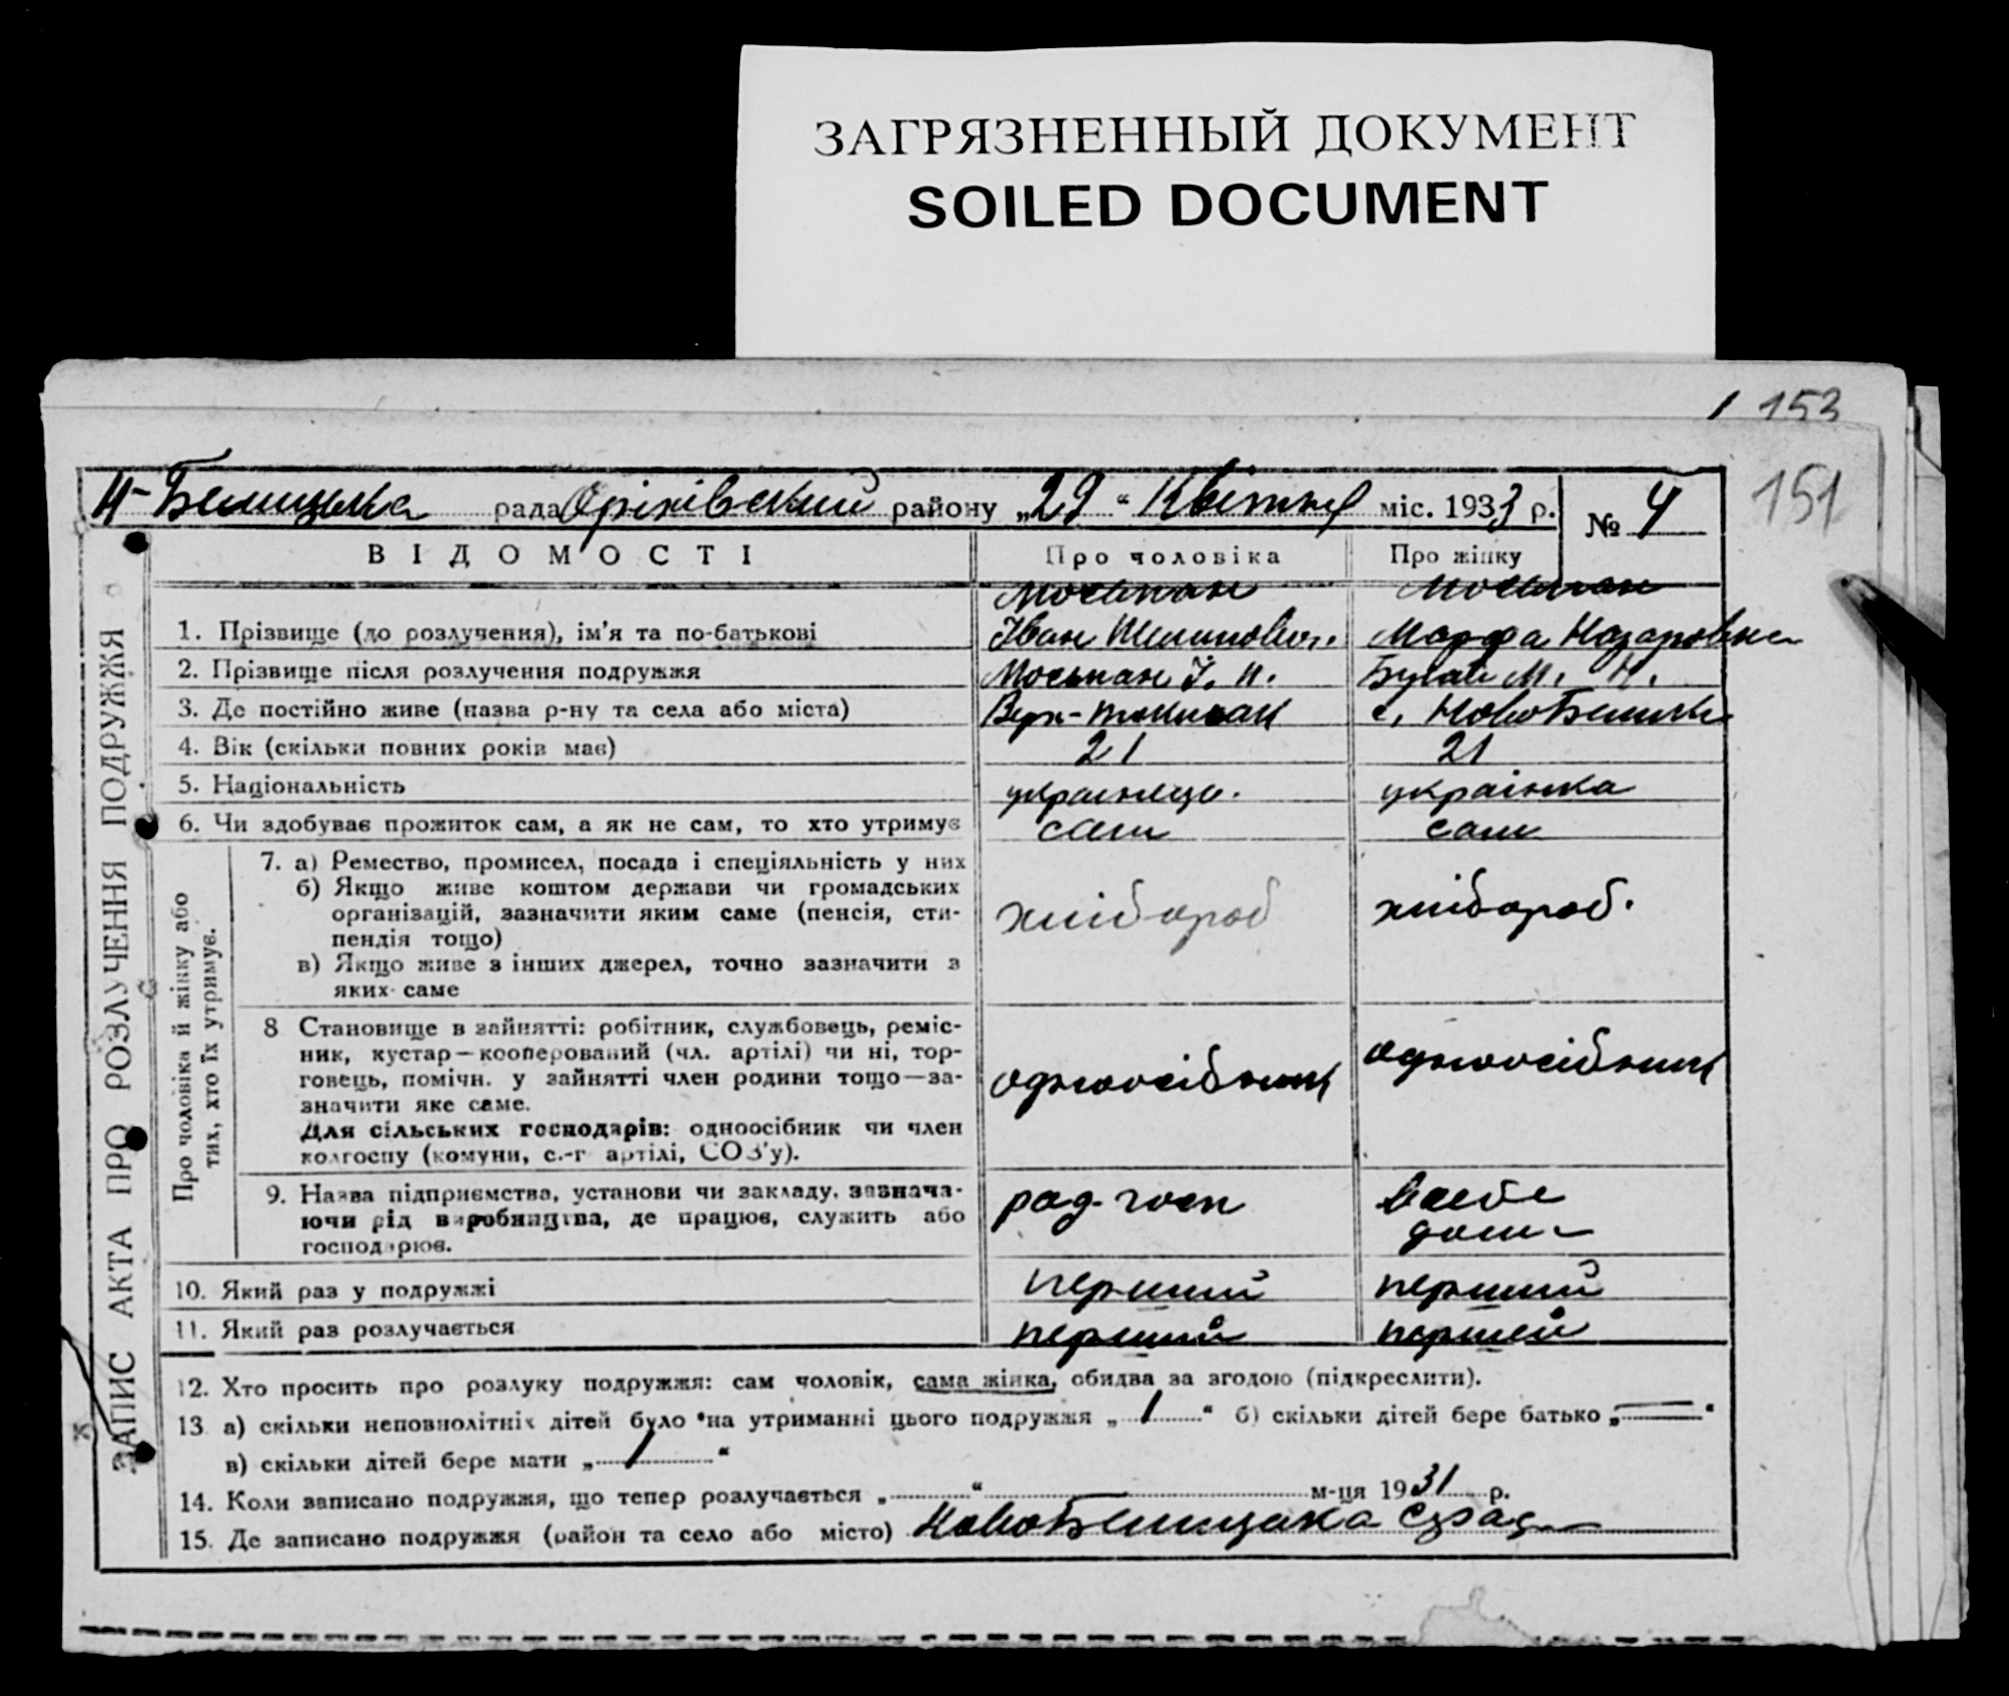 ЗАГРЯЗНЕННЫЙ ДОКУМЕНТ
SOILED DOCUMENT
153
151
рада Оріхівський району „29“ Квітня міс. 1933 р. № 4
ЗАПИС АКТА ПРО РОЗЛУЧЕННЯ ПОДРУЖЖЯ
ВІДОМОСТІ Про чоловіка Про жінку
Мосьпан Мосьпан
1. Прізвище (до розлучення), ім'я та по-батькові Іван Марфа Назаровна
2. Прізвище після розлучення подружжя Мосьпан І. Бугай М. Н.
3. Де постійно живе (назва р-ну та села або міста) Верх-Токмак с.
4. Вік (скільки повних років має) 21 21
5. Національність українець. українка
6. Чи здобуває прожиток сам, а як не сам, то хто утримує сам сам
Про чоловіка й жінку або тих, хто їх утримує.
7. а) Ремество, промисел, посада і спеціяльність у них
б) Якщо живе коштом держави чи громадських
організацій, зазначити яким саме (пенсія, сти-
пендія тощо) хлібороб хлібороб.
в) Якщо живе з інших джерел, точно зазначити з
яких саме
8 Становище в зайнятті: робітник, службовець, реміс-
ник, кустар—кооперований (чл. артілі) чи ні, тор-
говець, помічн. у зайнятті член родини тощо—за- одноосібник одноосібник
значити яке саме.
Для сільських господарів: одноосібник чи член
колгоспу (комуни, с.-г артілі, СОЗ'у).
9. Назва підприємства, установи чи закладу, зазнача-
ючи рід виробництва, де працює, служить або рад-госп
господарює.
10. Який раз у подружжі перший перший
11. Який раз розлучається перший першей
12. Хто просить про розлуку подружжя: сам чоловік, сама жінка, обидва за згодою (підкреслити).
13 а) скільки неповнолітніх дітей було на утриманні цього подружжя „1“ б) скільки дітей бере батько „—“
в) скільки дітей бере мати „1“
14. Коли записано подружжя, що тепер розлучається „ “ м-ця 1931 р.
15. Де записано подружжя (район та село або місто)